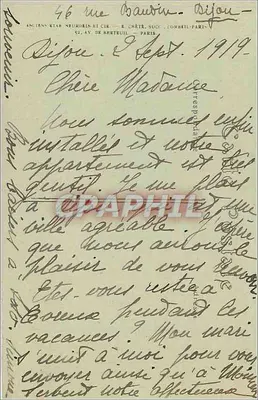 46 rue Baudin. Dijon -
ANCIENS ETAB. NEURDEIN ET CIE. - E. CRÉTÉ, SUCC., CORBEIL-PARIS
52, AV. DE BRETEUIL - PARIS
Dijon. 2 Sept 1919
Chère Madame
Nous sommes enfin
installés et notre
appartement est très
gentil. Je me plais
à Dijon, c'est une
ville agréable. J'espère
que nous aurons le
plaisir de vous
Etes-vous restée à
pendant les
vacances ? Mon mari
s'unit à moi pour vous
envoyer ainsi qu'à
notre affectueux
souvenir.
Bons baisers à
Correspondance
CPAPHIL